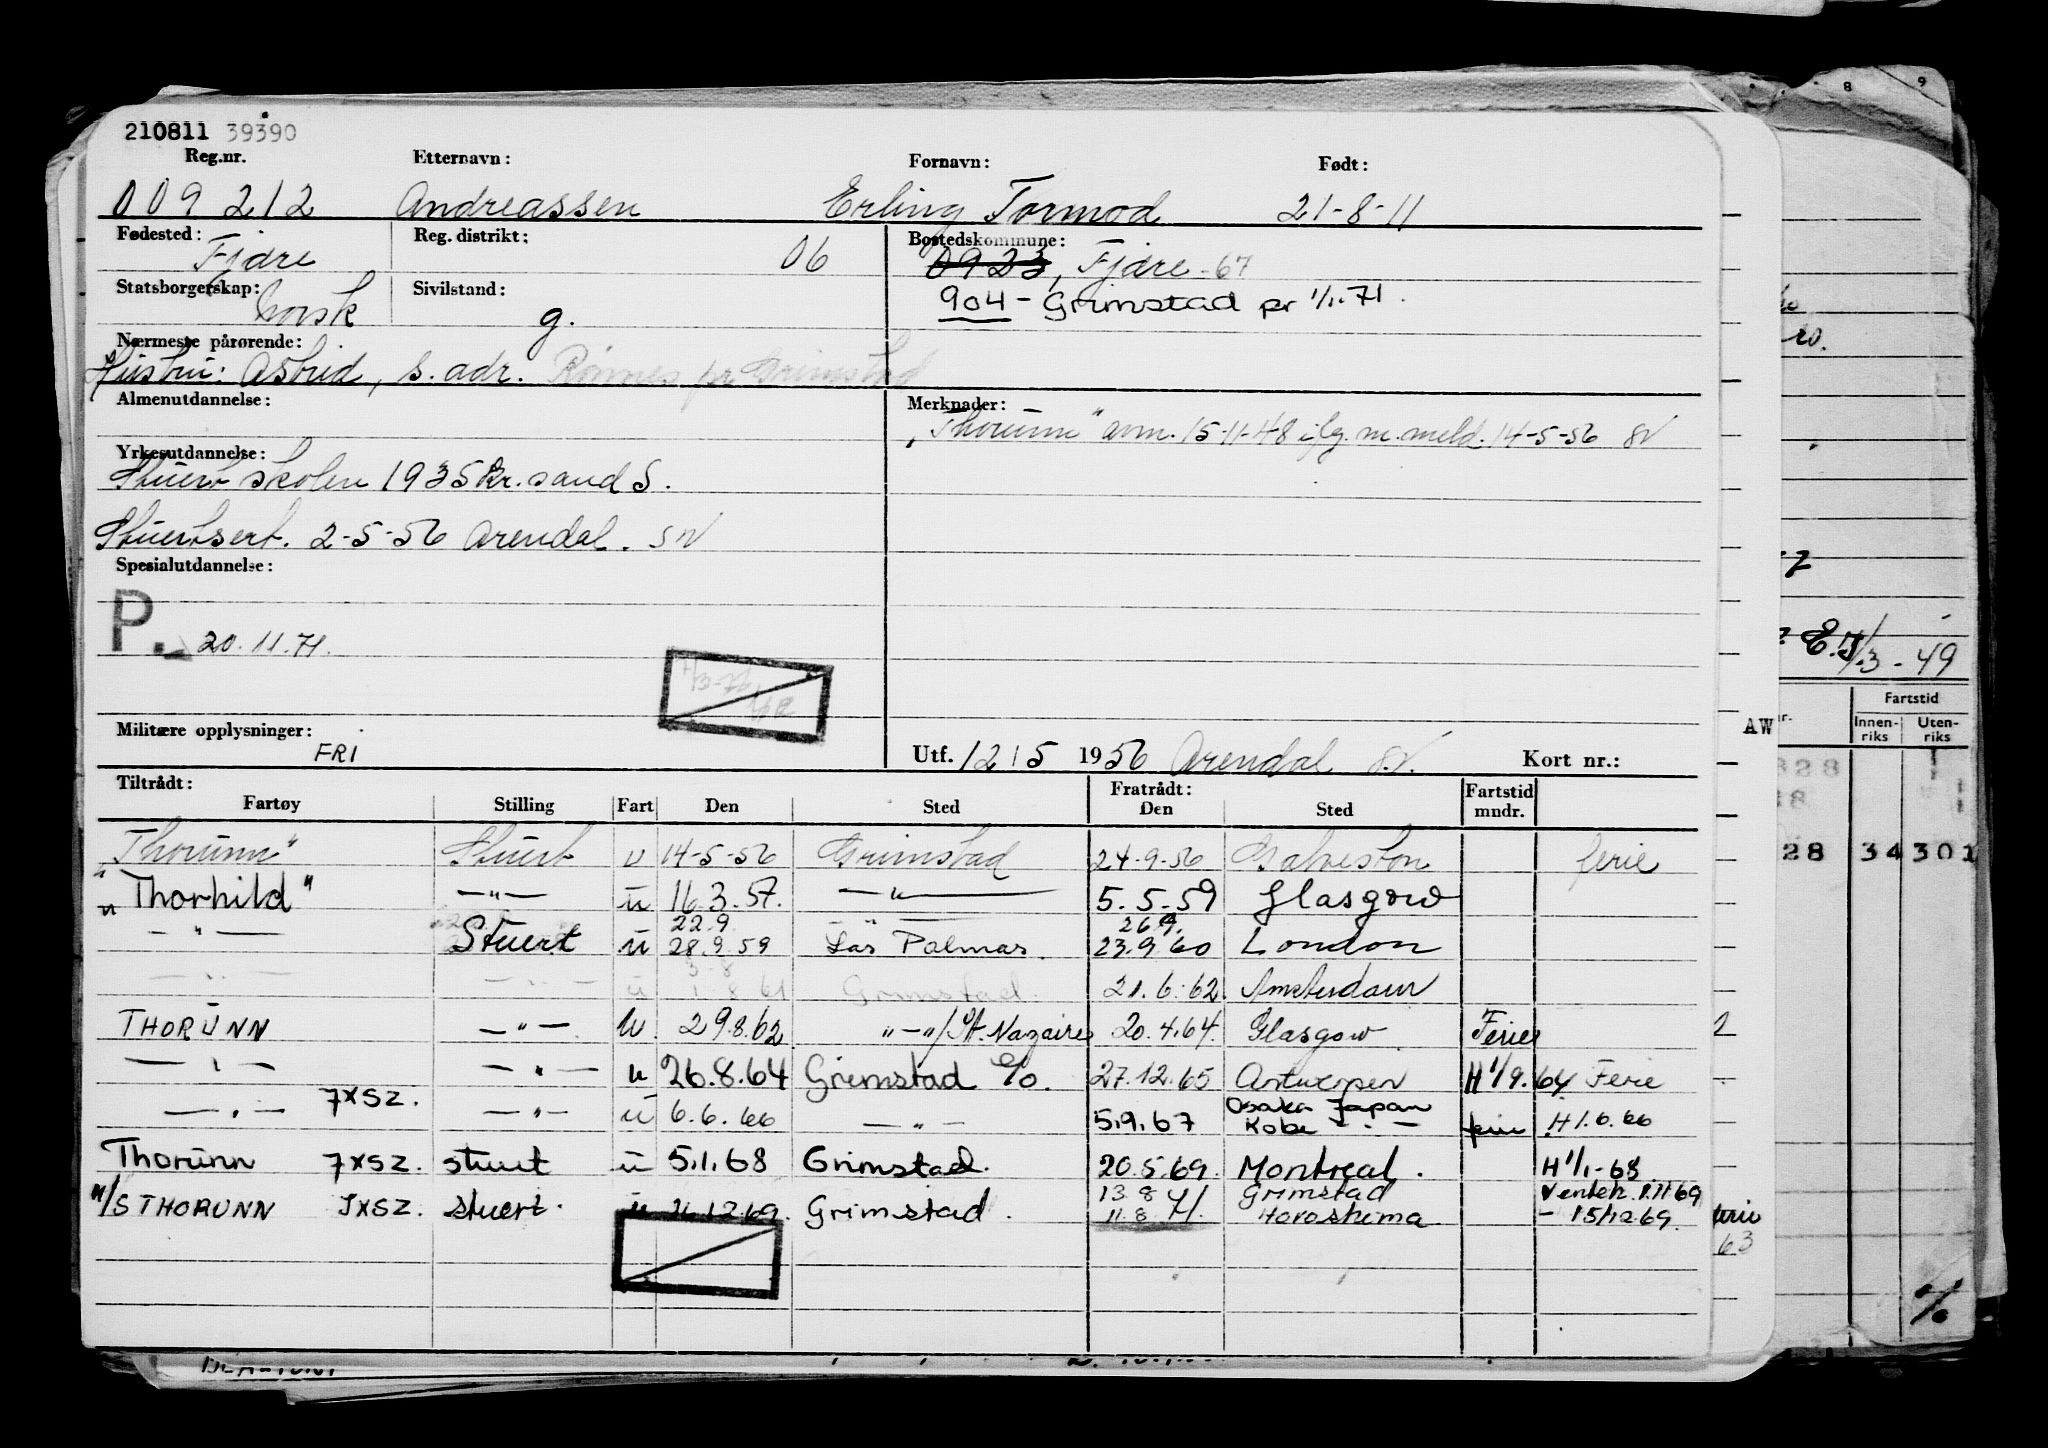 210811 39390
Reg.nr. Etternavn: Fornavn: Født:
009212 Andreassen Erling Tormod 21-8-11
Fødested: Fjære Reg. distrikt: 06 Bostedskommune:
0923, Fjære -67
Statsborgerskap: Norsk Sivilstand: g.
904 - Grimstad pr 1/1-71.
Nærmeste pårørende:
Hustru: Astrid, s. adr. Rønnes pr Grimstad
Almenutdannelse: Merknader:
"Thorunn" avm. 15-11-48 ifg. m. meld. 14-5-56 SN
Yrkesutdannelse:
Stuertskolen 1935 Kr.sand S.
Stuertsert. 2-5-56 Arendal. SN
Spesialutdannelse:
P. 20.11.71.
Militære opplysninger: FRI
Utf. 12/5 1956 Arendal SN. Kort nr.:
Tiltrådt: Fratrådt: Fartstid
Fartøy Stilling Fart Den Sted Den Sted mndr.
"Thorunn" Stuert u 14-5-56 Grimstad 24-9-56 Galveston ferie
"Thorhild" —"— u 16.3.57. —"— 5.5.59 Glasgow
22.9 —"— 26.9.
—"— Stuert u 28.9.59 Las Palmas. 23.9.60 London
3-8
—"— —"— u 1.8.61 Grimstad. 21.6.62. Amsterdam
THORUNN —"— u. 29.8.62 "—"/St. Nazaire 20.4.64. Glasgow. Ferie 2
—"— —"— u 26.8.64 Grimstad %. 27.12.65 Antwerpen H 1/9.64 Ferie
—"— 7XSZ. —"— u 6.6.66 —"— 5.9.67 Osaka Japan
Kobe —"— ferie H 1.6.66
Thorunn 7XSZ. stuert u 5.1.68 Grimstad. 20.5.69. Montreal. H 1/1-68
13.8 Grimstad Venteh. 1.11.69
M/S THORUNN JXSZ. stuert. u 16.12.69. Grimstad. 11.8.71. Horoshima - 15/12.69. ferie
63
AW
8 9
E.J 1/3-49
Fartstid
Innen-riks Uten-riks
328
28 34 301